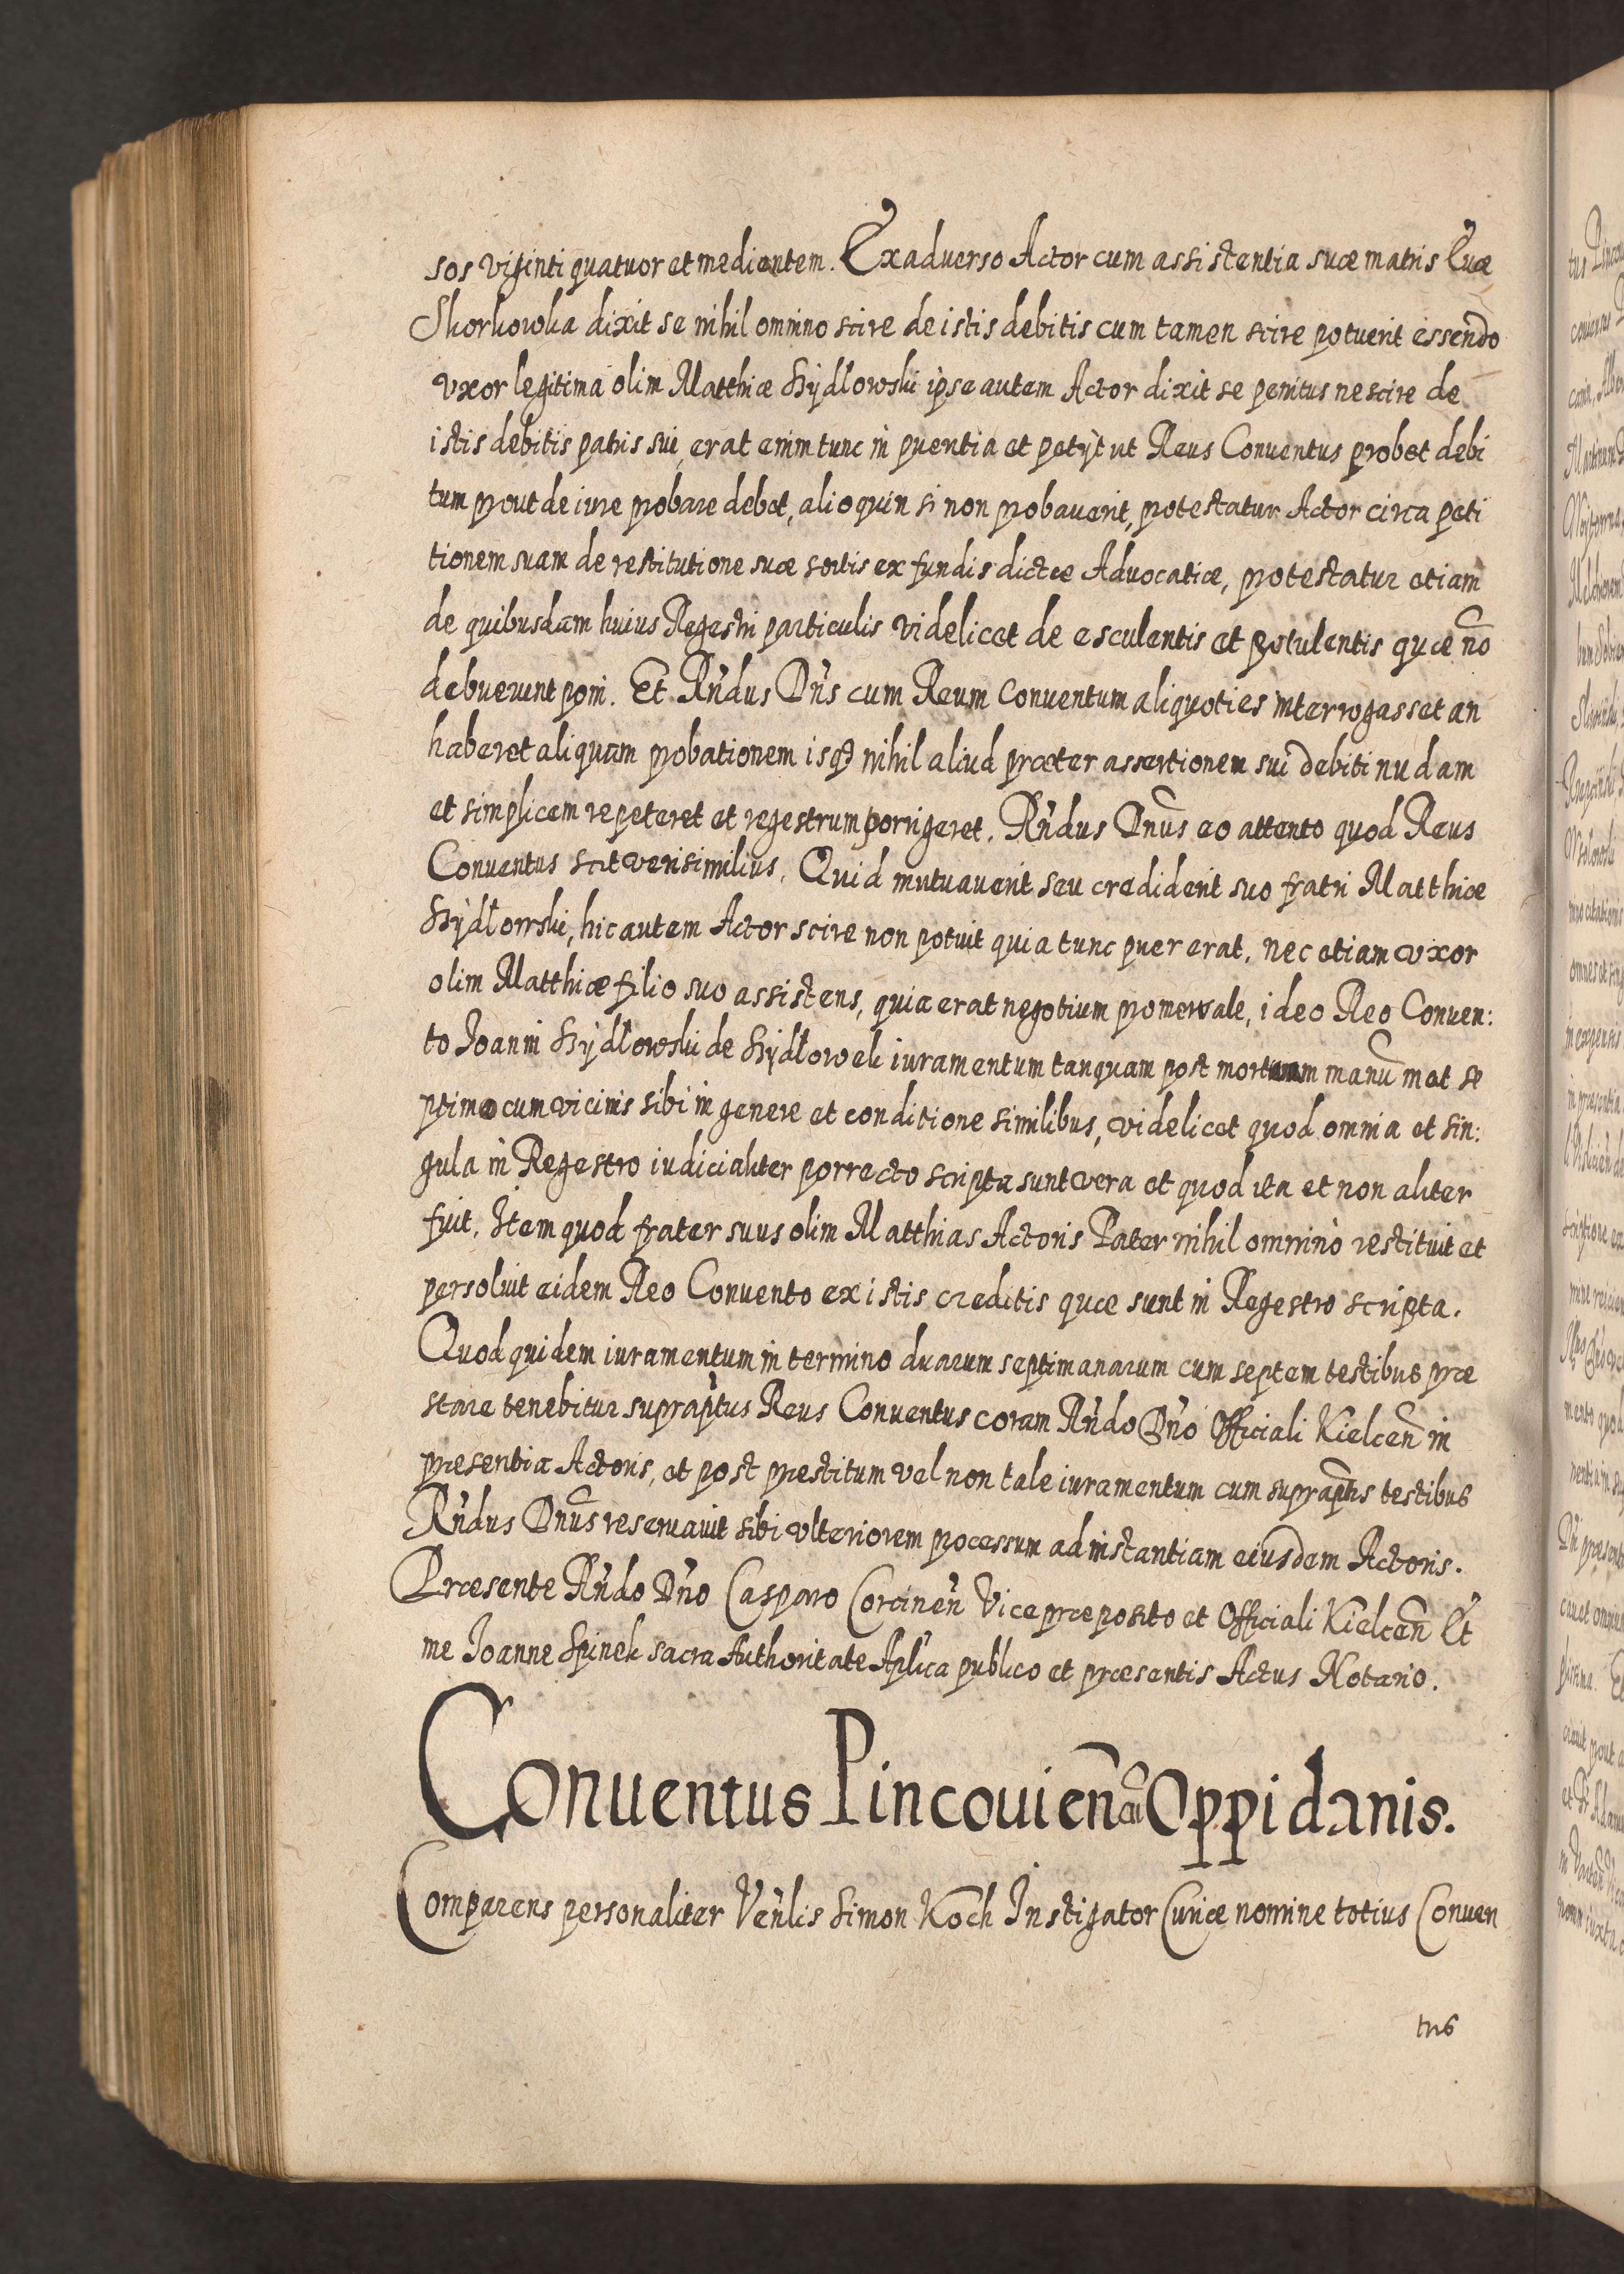 sos viginti quatuor et medientem. Ex adverso Actor cum assistentia suæ matris Euæ
Skorkowska dixit se nihil omnino scire de istis debitis cum tamen scire potuerit essendo
vxor legitima olim Matthiæ Sẏdłowski ipse autem Actor dixit se penitus nescire de
istis debitis patris sui, erat enim tunc in pueritia et petÿt ut Reus Conuentus probet debi
tum prout de iure probare debet, alioquin si non probauerit, protestatur Actor circa peti
tionem suam de restitutione suæ sortis ex fundis dictæ Advocatiæ, protestatur etiam
de quibusdam huius Regestri particulis videlicet de esculentis et potulentis quæ nō
debuerunt poni. Et Rn̄dus Dn̄s cum Reum Conuentum aliquoties interrogasset an
haberet aliquam probationem isq3 nihil aliud præter assertionem sui debiti nudam
et simplicem repeteret et regestrum porrigeret. Rn̄dus Dnūs eo attento quod Reus
Conuentus scit verisimilius, Quid mutuauerit seu crediderit suo fratri Matthiæ
Sẏdłowski, hic autem Actor scire non potuit quia tunc puer erat, nec etiam vxor
olim Matthiæ filio suo assistens, quia erat negotium promersale, ideo Reo Conuen:
to Joanni Sẏdłowski de Sẏdłowek iuramentum tanquam post mortuam manū met se
ptimo cum vicinis sibi in genere et conditione similibus, videlicet quod omnia et sin:
gula in Regestro iudicialiter porrecto scripta sunt vera et quod ita et non aliter
fuit. Item quod frater suus olim Matthias Actoris Pater nihil omnino restituit et
persoluit eidem Reo Conuento ex istis creditis quæ sunt in Regestro scripta.
Quod quidem iuramentum in termino duarum septimanarum cum septem testibus præ
stare tenebitur suprap̄tus Reus Conuentus coram Rn̄do Dn̄o Officiali Kielceñ in
presentia Actoris, et post prestitum vel non tale iuramentum cum suprap̄tis testibus
Rn̄dus Dnūs reseruauit sibi vlteriorem processum ad instantiam eiusdem Actoris.
Præsente Rn̄do Dn̄o Casparo Corcineñ Vicepræposito et Officiali Kielceñ Et
me Joanne Spinek sacra Authoritate Aplica publico et præsentis Actus Notario.
Conuentus Pincouieñ cū Oppidanis.
Comparens personaliter Ven̄lis Simon Koch Instigator Curiæ nomine totius Conuen
tus